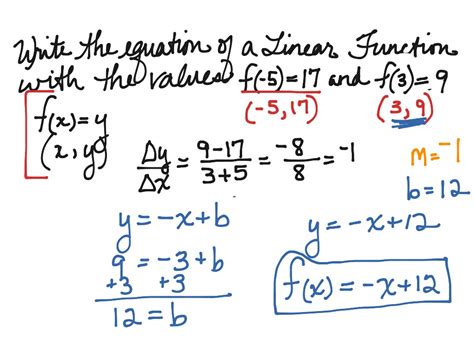 Write the equation of a Linear Function
with the values f(-5)=17 and f(3)=9
(-5,17) (3,9)
f(x)=y
(x,y)
Δy/Δx = 9-17/3+5 = -8/8 = -1
m=-1
b=12
y=-x+b
9=-3+b
+3 +3
12=b
y=-x+12
f(x)=-x+12